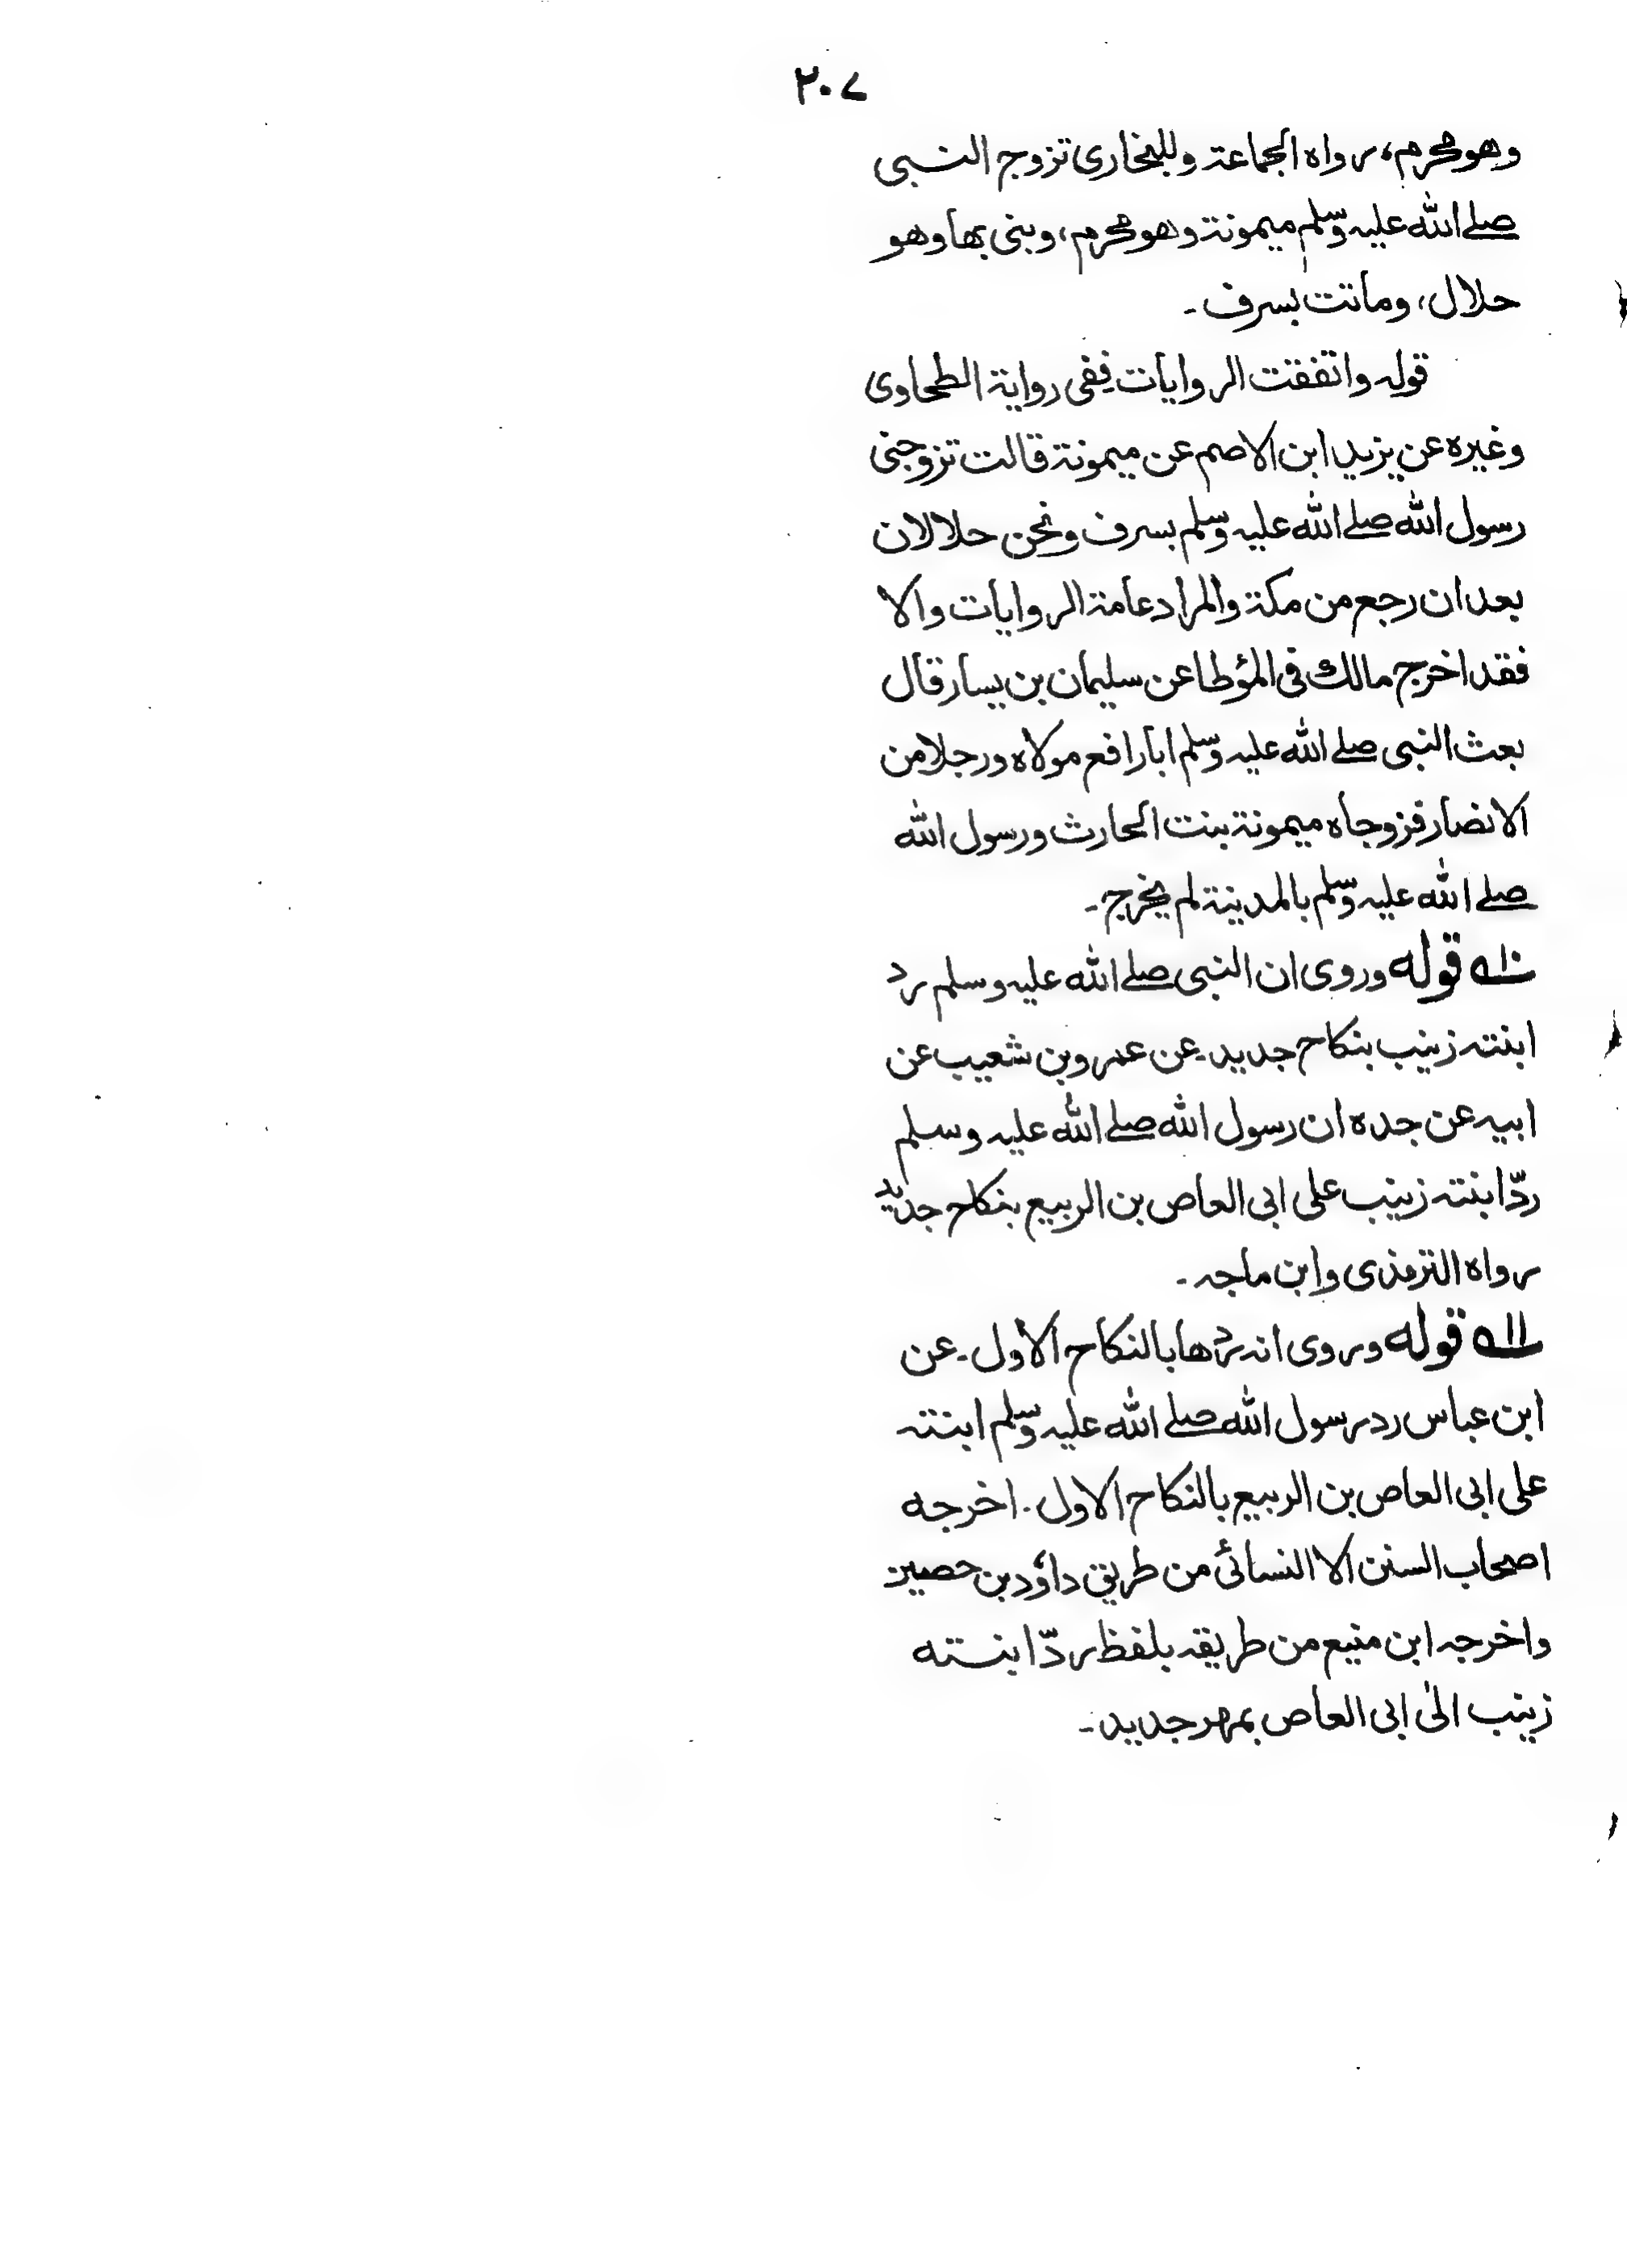 ۲۰۷
وهو محرم، رواه الجماعة وللبخاری تزوج النبی
صلے الله علیه وسلم میمونة وهو محرم، وبنی بها وهو
حلال، وماتت بسرف۔
قوله واتفقت الروایات ففی روایة الطحاوی
وغیره عن یزید ابن الاصم عن میمونة قالت تزوجنی
رسول الله صلے الله علیه وسلم بسرف ونحن حلالان
بعد ان رجع من مکة والمراد عامة الروایات والا
فقد اخرج مالك فی المؤطا عن سلیمان بن یسار قال
بعث النبی صلے الله علیه وسلم ابا رافع مولاه ورجلا من
الانصار فزوجاه میمونة بنت الحارث ورسول الله
صلے الله علیه وسلم بالمدینة لم یخرج۔
۱۰ه قوله وروی ان النبی صلے الله علیه وسلم رد
ابنته زینب بنکاح جدید۔ عن عمرو بن شعیب عن
ابیه عن جده ان رسول الله صلے الله علیه وسلم
ردّ ابنته زینب علی ابی العاص بن الربیع بنکاح جدید
رواه الترمذی وابن ماجه۔
۱۱ه قوله وروی انه ردها بالنکاح الاول۔ عن
ابن عباس رد رسول الله صلے الله علیه وسلم ابنته
علی ابی العاص بن الربیع بالنکاح الاول۔ اخرجه
اصحاب السنن الا النسائی من طریق داؤد بن حصین
واخرجه ابن منیع من طریقه بلفظ ردّ ابنته
زینب الیٰ ابی العاص بمهر جدید۔